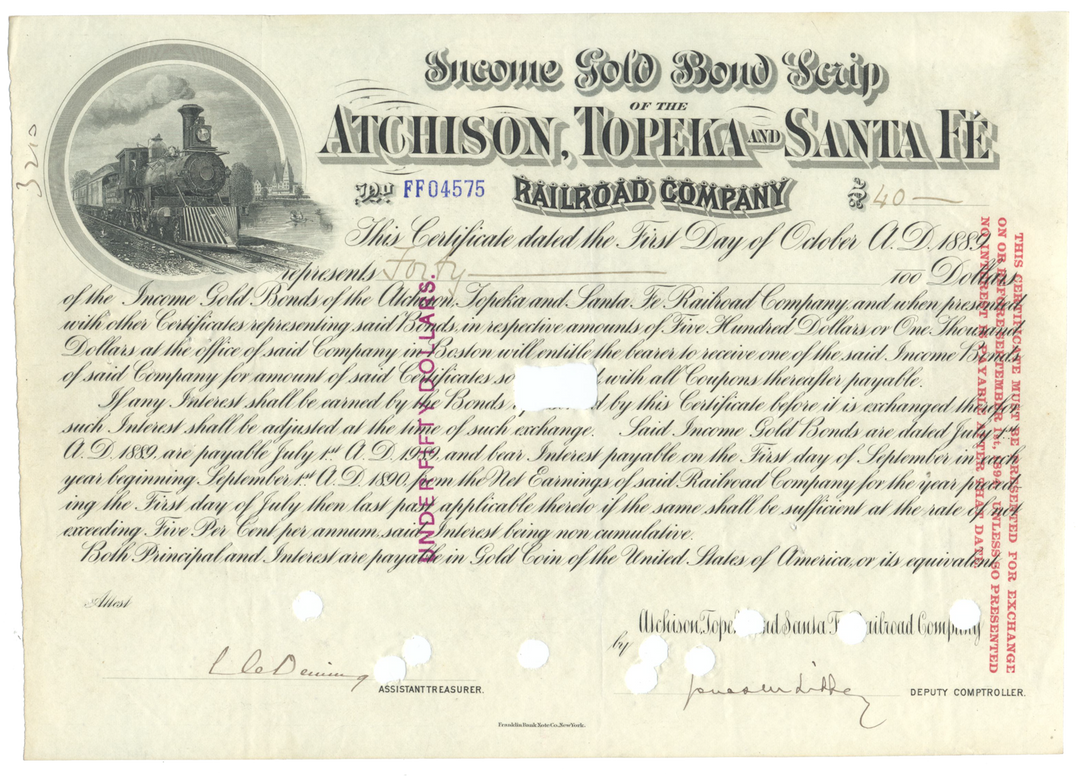 Income Gold Bond Scrip
OF THE
ATCHISON, TOPEKA AND SANTA FÉ
RAILROAD COMPANY
No. FF04575
$ 40 —
3210
This Certificate dated the First Day of October A.D. 1889,
represents Forty 100 Dollars
of the Income Gold Bonds of the Atchison, Topeka and Santa Fe Railroad Company, and when presented
with other Certificates representing said Bonds, in respective amounts of Five Hundred Dollars or One Thousand
Dollars at the office of said Company in Boston will entitle the bearer to receive one of the said Income Bonds
of said Company for amount of said Certificates so with all Coupons thereafter payable.
If any Interest shall be earned by the Bonds by this Certificate before it is exchanged therefor
such Interest shall be adjusted at the time of such exchange. Said Income Gold Bonds are dated July 1st
A.D. 1889, are payable July 1st A.D. 1989, and bear Interest payable on the First day of September in each
year beginning September 1st A.D. 1890, from the Net Earnings of said Railroad Company for the year preced-
ing the First day of July then last past applicable thereto if the same shall be sufficient at the rate of not
exceeding Five Per Cent per annum, said Interest being non cumulative.
Both Principal and Interest are payable in Gold Coin of the United States of America, or its equivalent.
UNDER FIFTY DOLLARS.
THIS CERTIFICATE MUST BE PRESENTED FOR EXCHANGE
ON OR BEFORE SEPTEMBER 1st, UNLESS SO PRESENTED
NO INTEREST IS PAYABLE AFTER THAT DATE.
Attest
Atchison, Topeka and Santa Fe Railroad Company
by
ASSISTANT TREASURER.
DEPUTY COMPTROLLER.
Franklin Bank Note Co. New York.